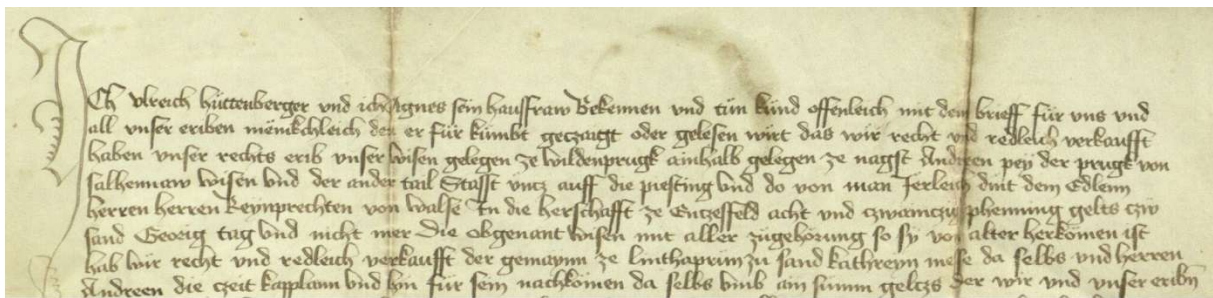 ICh Vlreich hüttenberger vnd ich Agnes sein hausfraw Bekennen vnd tůn kůnd offenleich mit dem brieff für vns vnd
all vnser eriben mënikchleich den er für kümbt geczaigt oder gelesen wirt das wir recht vnd redleich verkaufft
haben vnser rechts erib vnser wisen gelegen ze wildenprugk ainhalb gelegen ze nagst Andreen pey der prugk von
salhennaw wisen vnd der ander tail Stosst vncz auff die piesting vnd do von man Jerleich dint dem Edlenn
herren herren Reynprechten von walse In die herschafft ze Enczesfeld acht vnd czwainczig phenning gelts czw
sand Georig tag vnd nicht mer Die obgenant wisen mit aller zůgehörung so sy von alter herkömen ist
hab wir recht vnd redleich verkaufft der gemaynn ze linthaprun zu sand kathreyn mese da selbs vnd herren
Andreen die czeit kapplann vnd hin für sein nachkömen da selbs vmb ain summ geltzs der wir vnd vnser eribn